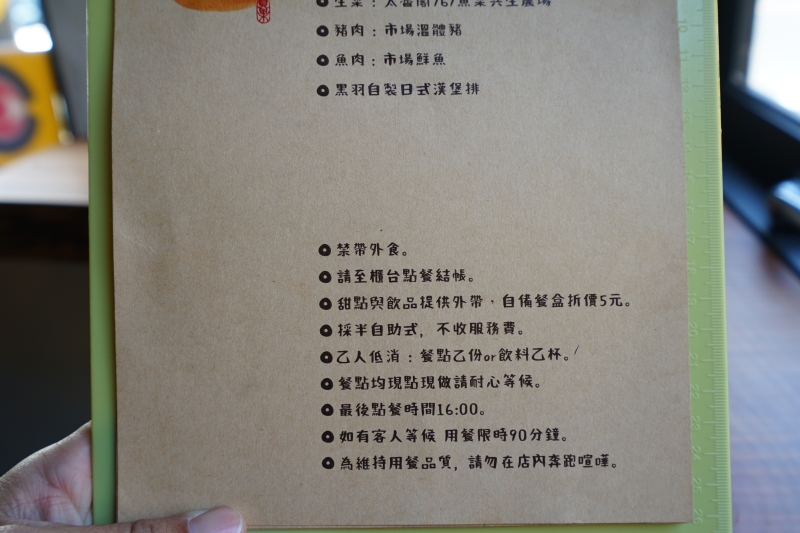 豬肉：市場溫體豬
魚肉：市場鮮魚
黑羽自製日式漢堡排
禁帶外食。
請至櫃台點餐結帳。
甜點與飲品提供外帶，自備餐盒折價5元。
採半自助式，不收服務費。
乙人低消：餐點乙份or飲料乙杯。
餐點均現點現做請耐心等候。
最後點餐時間16:00。
如有客人等候 用餐限時90分鐘。
為維持用餐品質，請勿在店內奔跑喧嘩。